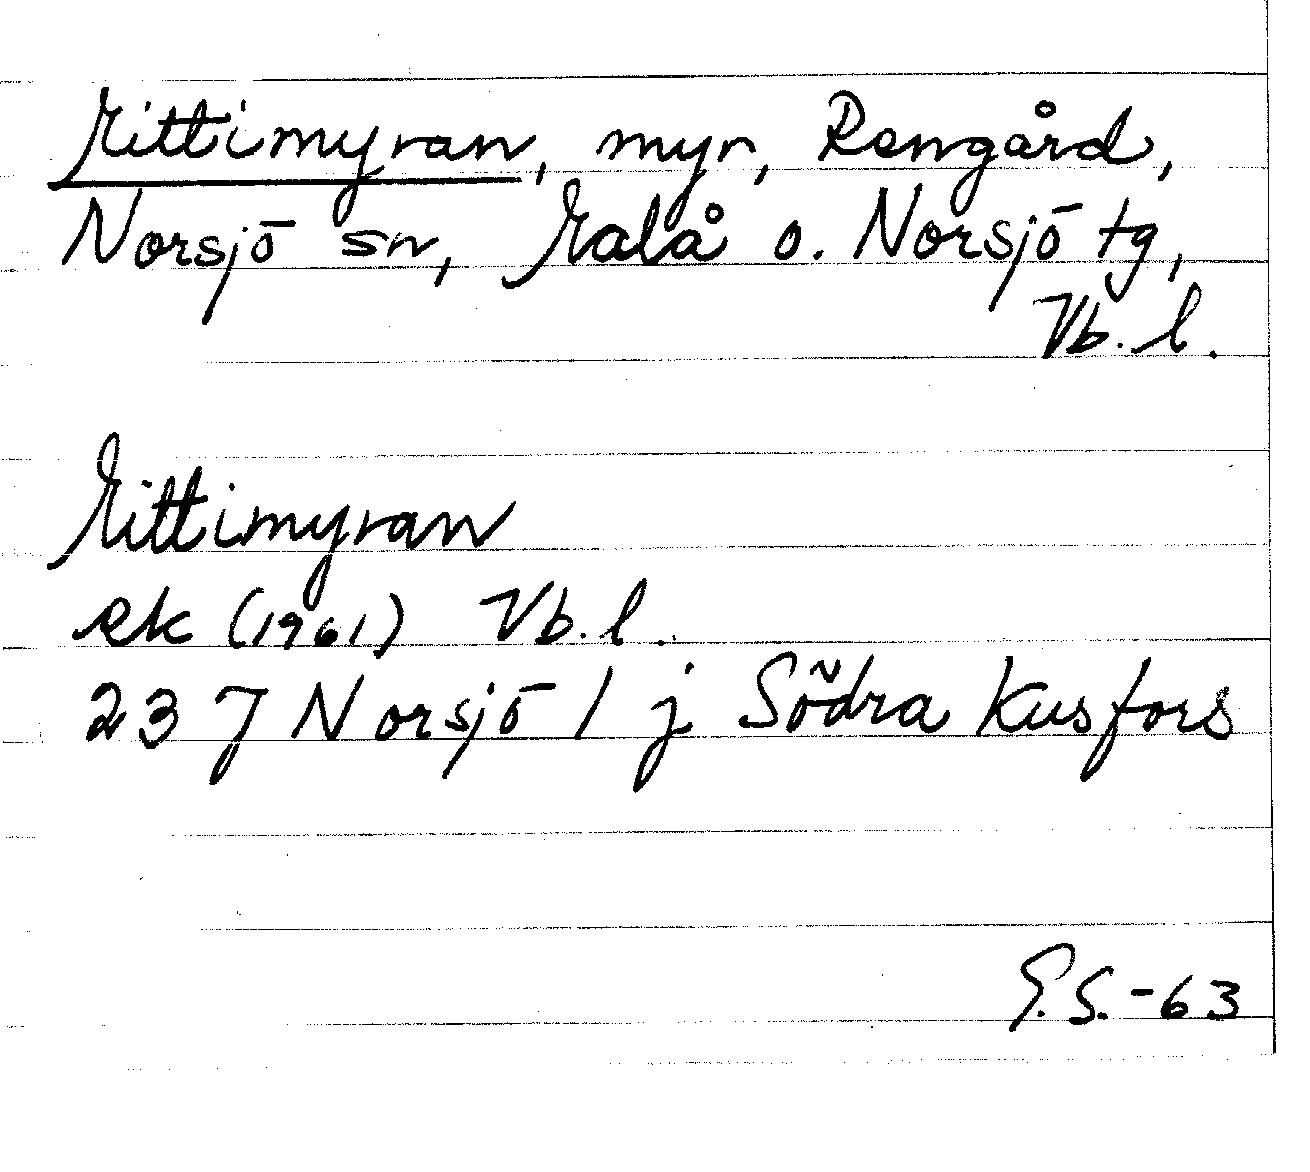 Mittimyran, myr, Rengård,
Norsjö sn, Malå o. Norsjö tg,
Vb. l.
Mittimyran
ek (1961) Vb. l.
23 J Norsjö l j Södra Kusfors
G.S.-63